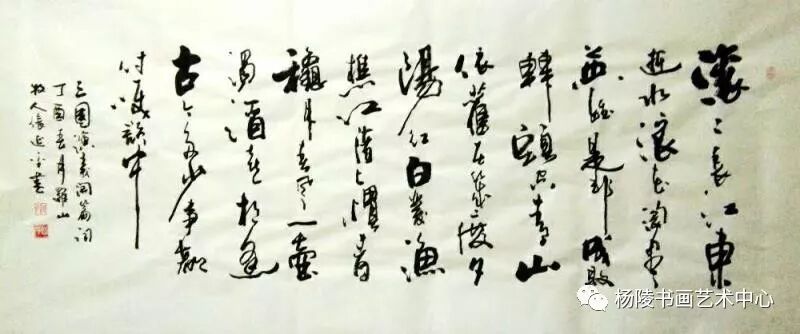 滚〻長江東
逝水浪花淘尽
英雄是非成敗
轉頭空青山
依舊在幾度夕
陽紅白发渔
樵江渚上惯看
穐月春風一壺
濁酒喜相逢
古今多少事都
付笑談中
三國演義開篇詞
丁酉春月羅山
牧人張延書
杨陵书画艺术中心